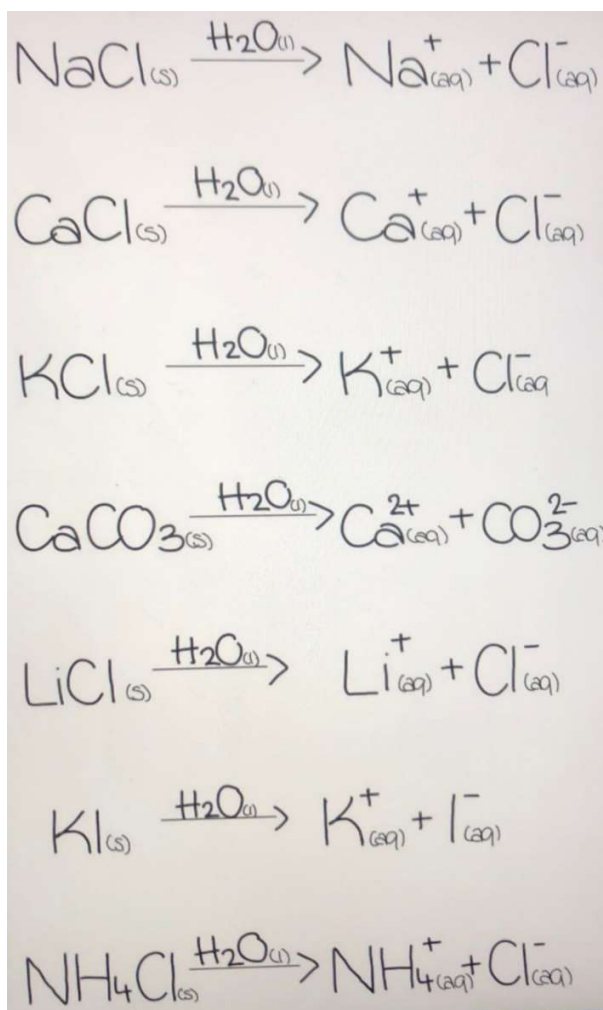 NaCl(s) H2O(l) → Na+(aq) + Cl-(aq)
CaCl(s) H2O(l) → Ca+(aq) + Cl-(aq)
KCl(s) H2O(l) → K+(aq) + Cl-(aq
CaCO3(s) H2O(l) → Ca2+(aq) + CO32-(aq)
LiCl(s) H2O(l) → Li+(aq) + Cl-(aq)
KI(s) H2O(l) → K+(aq) + I-(aq)
NH4Cl(s) H2O(l) → NH4+(aq) + Cl-(aq)